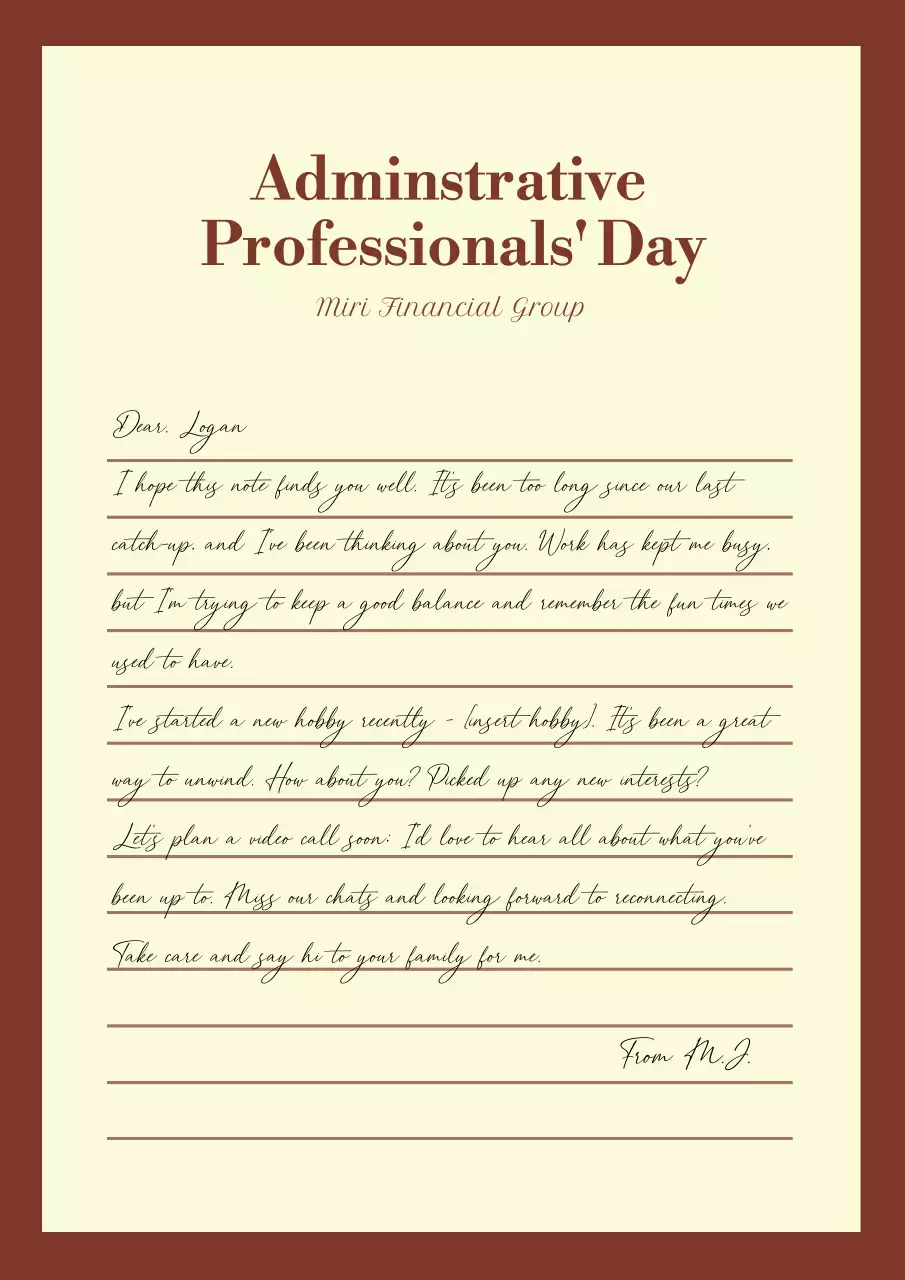 Adminstrative
Professionals' Day
Miri Financial Group
Dear. Logan
I hope this note finds you well. It's been too long since our last
catch-up, and I've been thinking about you. Work has kept me busy,
but I'm trying to keep a good balance and remember the fun times we
used to have.
I've started a new hobby recently - [insert hobby]. It's been a great
way to unwind. How about you? Picked up any new interests?
Let's plan a video call soon; I'd love to hear all about what you've
been up to. Miss our chats and looking forward to reconnecting.
Take care and say hi to your family for me.
From M.J.